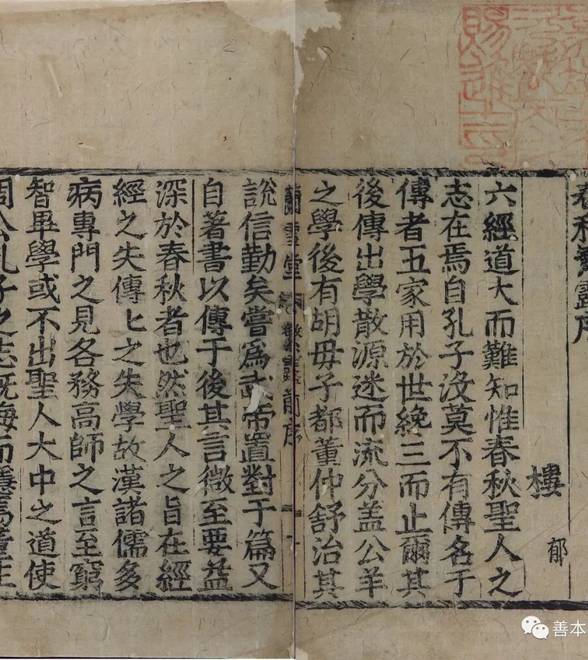 春秋繁露序
樓郁
六經道大而難知惟春秋聖人之
志在焉自孔子沒莫不有傳名于
傳者五家用於世纔三而止爾其
後傳出學散源迷而流分盖公羊
之學後有胡毋子都董仲舒治其
蘭雪堂
繁露前序
一
說信勤矣嘗爲武帝置對于篇又
自著書以傳于後其言微至要盖
深於春秋者也然聖人之旨在經
經之失傳傳之失學故漢諸儒多
病專門之見各務高師之言至窮
智畢學或不出聖人大中之道使
周公孔子之志既晦而隱焉董生
善本